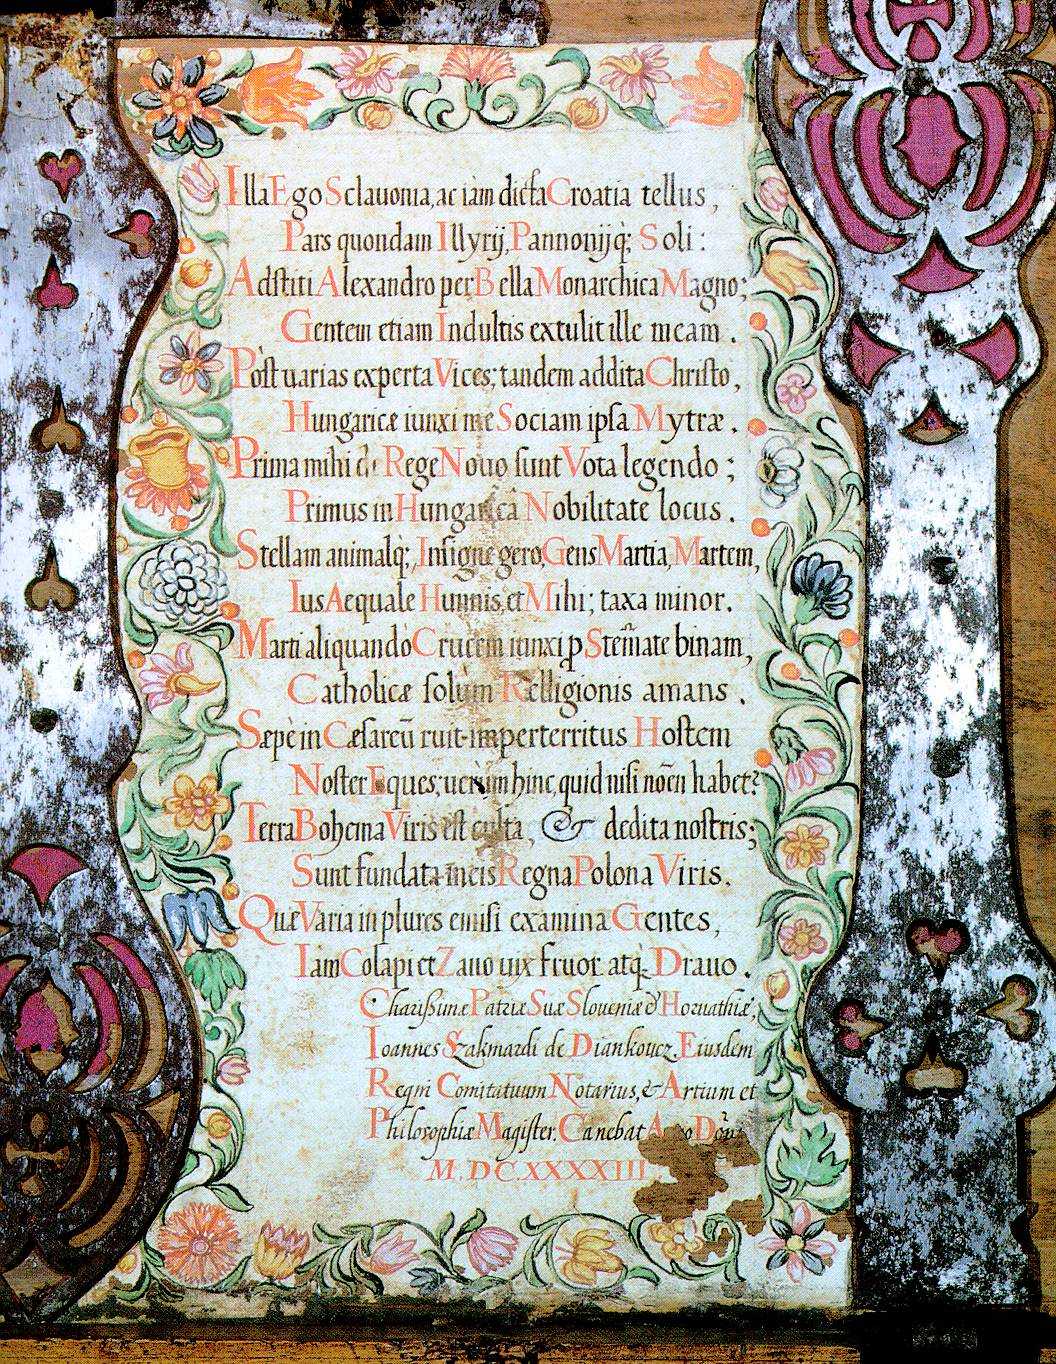 Illa Ego Sclauonia, ac iàm dicta Croatia tellus,
Pars quondam Illyrij, Pannonijq; Soli:
Adstiti Alexandro per Bella Monarchica Magno;
Gentem etiam Indultis extulit ille meam.
Pòst uarias experta Vices; tandem addita Christo,
Hungaricæ iunxi me Sociam ipsa Mytræ.
Prima mihi de Rege Nouo sunt Vota legendo;
Primus in Hungaricâ Nobilitate locus.
Stellam animalq; Insigne gero, Gens Martia, Martem,
Ius Aequale Hunnis, et Mihi; taxa minor.
Marti aliquandò Crucem iunxi p Stem̃ate binam,
Catholicæ solùm Relligionis amans.
Sæpè in Cæsareũ ruit imperterritus Hostem
Noster Eques; uerùm hinc, quid nisi nõen habet?
Terra Bohema Viris est culta, & dedita nostris;
Sunt fundata meis Regna Polona Viris.
Quæ Varia in plures emisi examina Gentes,
Iam Colapi et Zauo uix fruor atq; Drauo.
Charissimæ Patriæ Suæ Sloueniæ d' Horuathiæ,
Ioannes Szakmardi de Diankouez. Eiusdem
Regni Comitatuum Notarius, & Artium et
Philosophiæ Magister. Canebat Dõni
M.DC.XXXXIII.